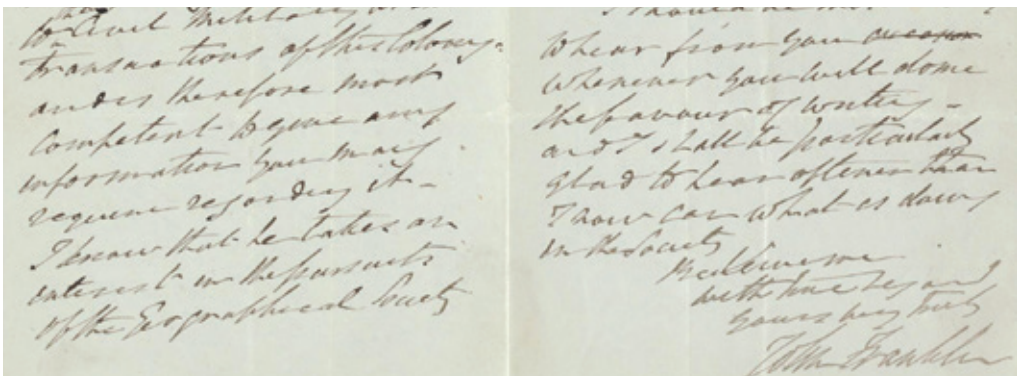 to Civil Military
transactions of this Colony -
and is therefore most
competent to give any
information you may
require regarding it -
I know that he takes an
interest in the pursuits
of the Geographical Society
I should be most
to hear from you
whenever you will do me
the favour of writing -
and I shall be particularly
glad to hear oftener than
I now can what is doing
in the Society
Believe me
with true regard
Yours very truly
John Franklin